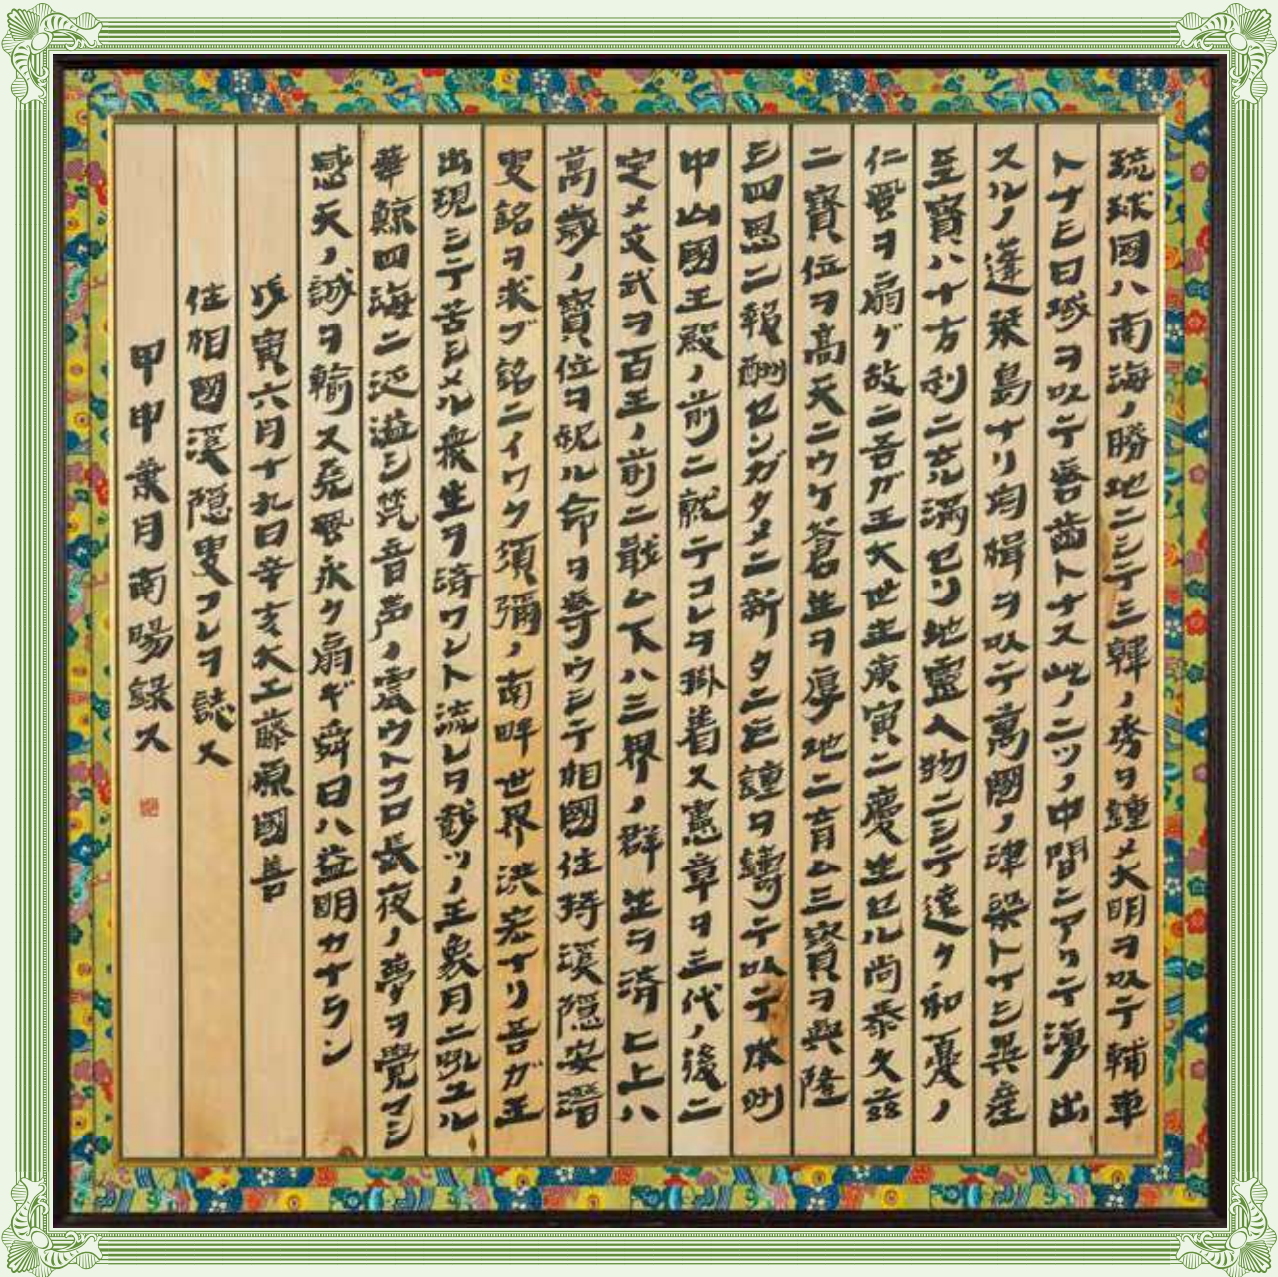 琉球國ハ南海ノ勝地ニシテ三韓ノ秀ヲ鐘メ大明ヲ以テ輔車
トナシ日域ヲ以テ唇歯トナス此ノ二ツノ中間ニアリテ湧出
スルノ蓬莱島ナリ舟楫ヲ以テ萬國ノ津梁トナシ異産
至寶ハ十方刹ニ充満セリ地靈人物ニシテ遠ク和夏ノ
仁風ヲ扇グ故ニ吾ガ王大世主庚寅ニ慶生セル尚泰久茲
ニ寶位ヲ高天ニウケ蒼生ヲ厚地ニ育ム三寶ヲ興隆
シ四恩ニ報酬センガタメニ新タニ巨鐘ヲ鑄テ以テ本州
中山國王殿ノ前ニ就テコレヲ掛着ス憲章ヲ三代ノ後ニ
定メ文武ヲ百王ノ前ニ戢ム下ハ三界ノ群生ヲ済ヒ上ハ
萬歳ノ寶位ヲ祝ル命ヲ辱ウシテ相國住持溪隠安潜
叟銘ヲ求ブ銘ニイワク須彌ノ南畔世界洪宏ナリ吾ガ王
出現シテ苦シメル衆生ヲ済ワント流レヲ截ツノ玉象月ニ吼ユル
華鯨四海ニ泛溢シ梵音声ノ震ウトコロ長夜ノ夢ヲ覚マシ
感天ノ誠ヲ輸ス堯風永ク扇ギ舜日ハ益明カナラン
戊寅六月十九日辛亥大工藤原國善
住相國溪隠叟コレヲ誌ス
甲申葉月南陽録ス